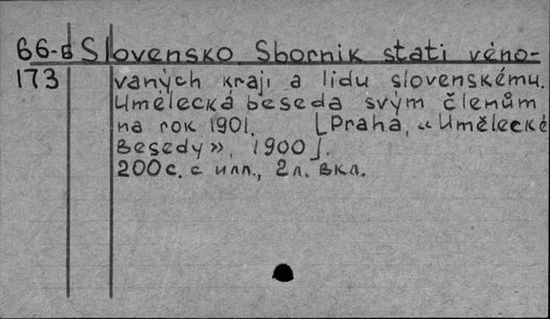 66-Б Slovensko Sbornik stati věno-
173 vaných kraji a lidu slovenskému.
Umělecká beseda svým členům
na rok 1901. [Praha, «Umělecké
Besedy», 1900].
200с. с илл., 2л. вкл.